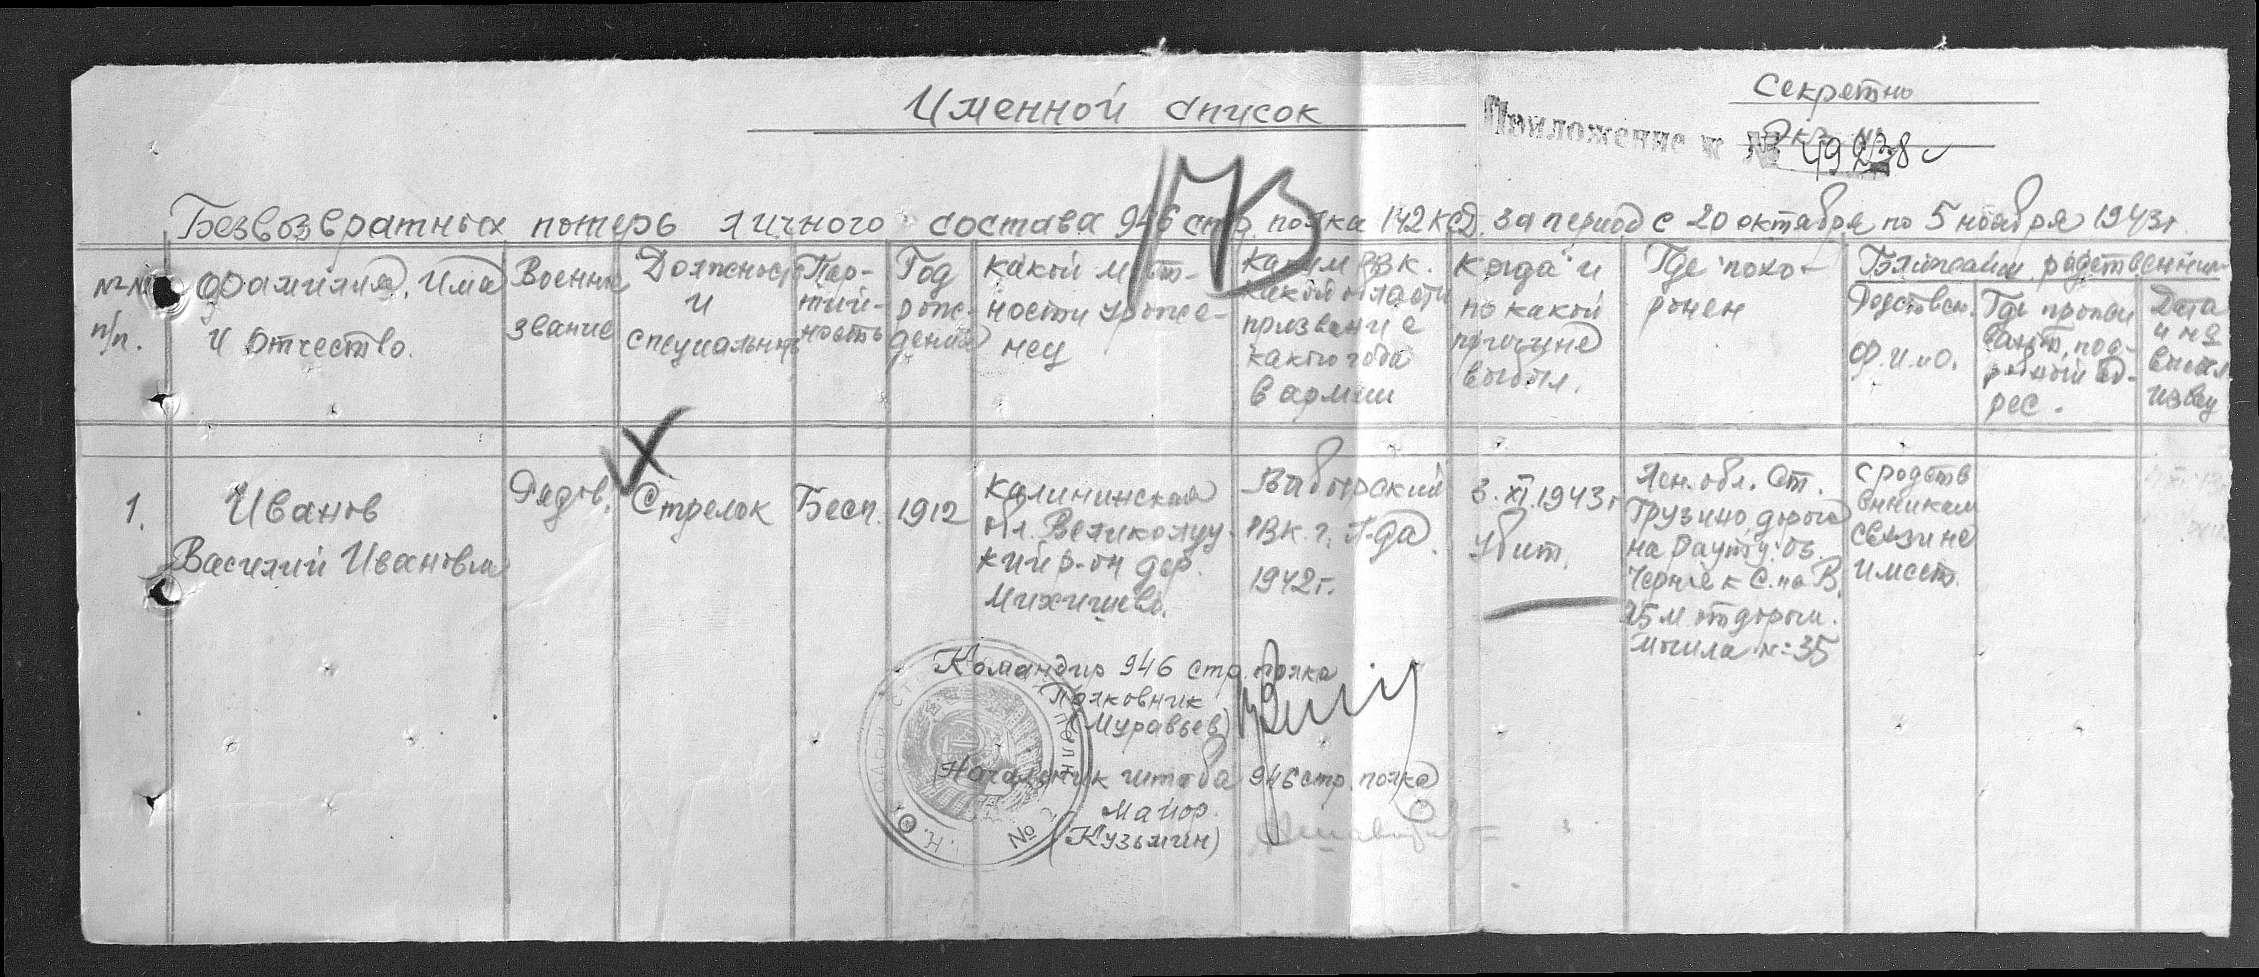 Секретно
Именной список
Приложение к № 49238
Безвозвратных потерь личного состава 946 стр. полка 142 КСД. за период с 20 октября по 5 ноября 1943г.
№№ п/п.
Фамилия, Имя
и отчество.
Военное
звание
Должность
и
специальность
Пар-
тий-
ность
Год
рож-
дения
Какой мест-
ности уроже-
нец
Каким РВК.
какой области
призван и с
какого года
в армии
Когда и
по какой
причине
выбыл.
Где похо-
ронен
Ближайшие родственники
Родствен.
Ф.И.О.
Где прожи
вают, под-
робный ад-
рес.
Дата
и №
высыл
извещ
1.
Иванов
Василий Иванович
Рядов.
Стрелок
Бесп.
1912
Калининская
обл. Великолуц-
кий р-он дер.
Выборский
РВК. г. Л-да.
1942г.
3.XI.1943г
Убит.
Лен. обл. Ст.
Грузино дорога
на Рауту: оз.
Черное к С. на В.
25 м от дороги.
Могила №:35
с родств
енникам
связи не
имеет.
Командир 946 стр. полка
Полковник
(Муравьев)
Начальник штаба 946 стр. полка
Майор.
(Кузьмин)